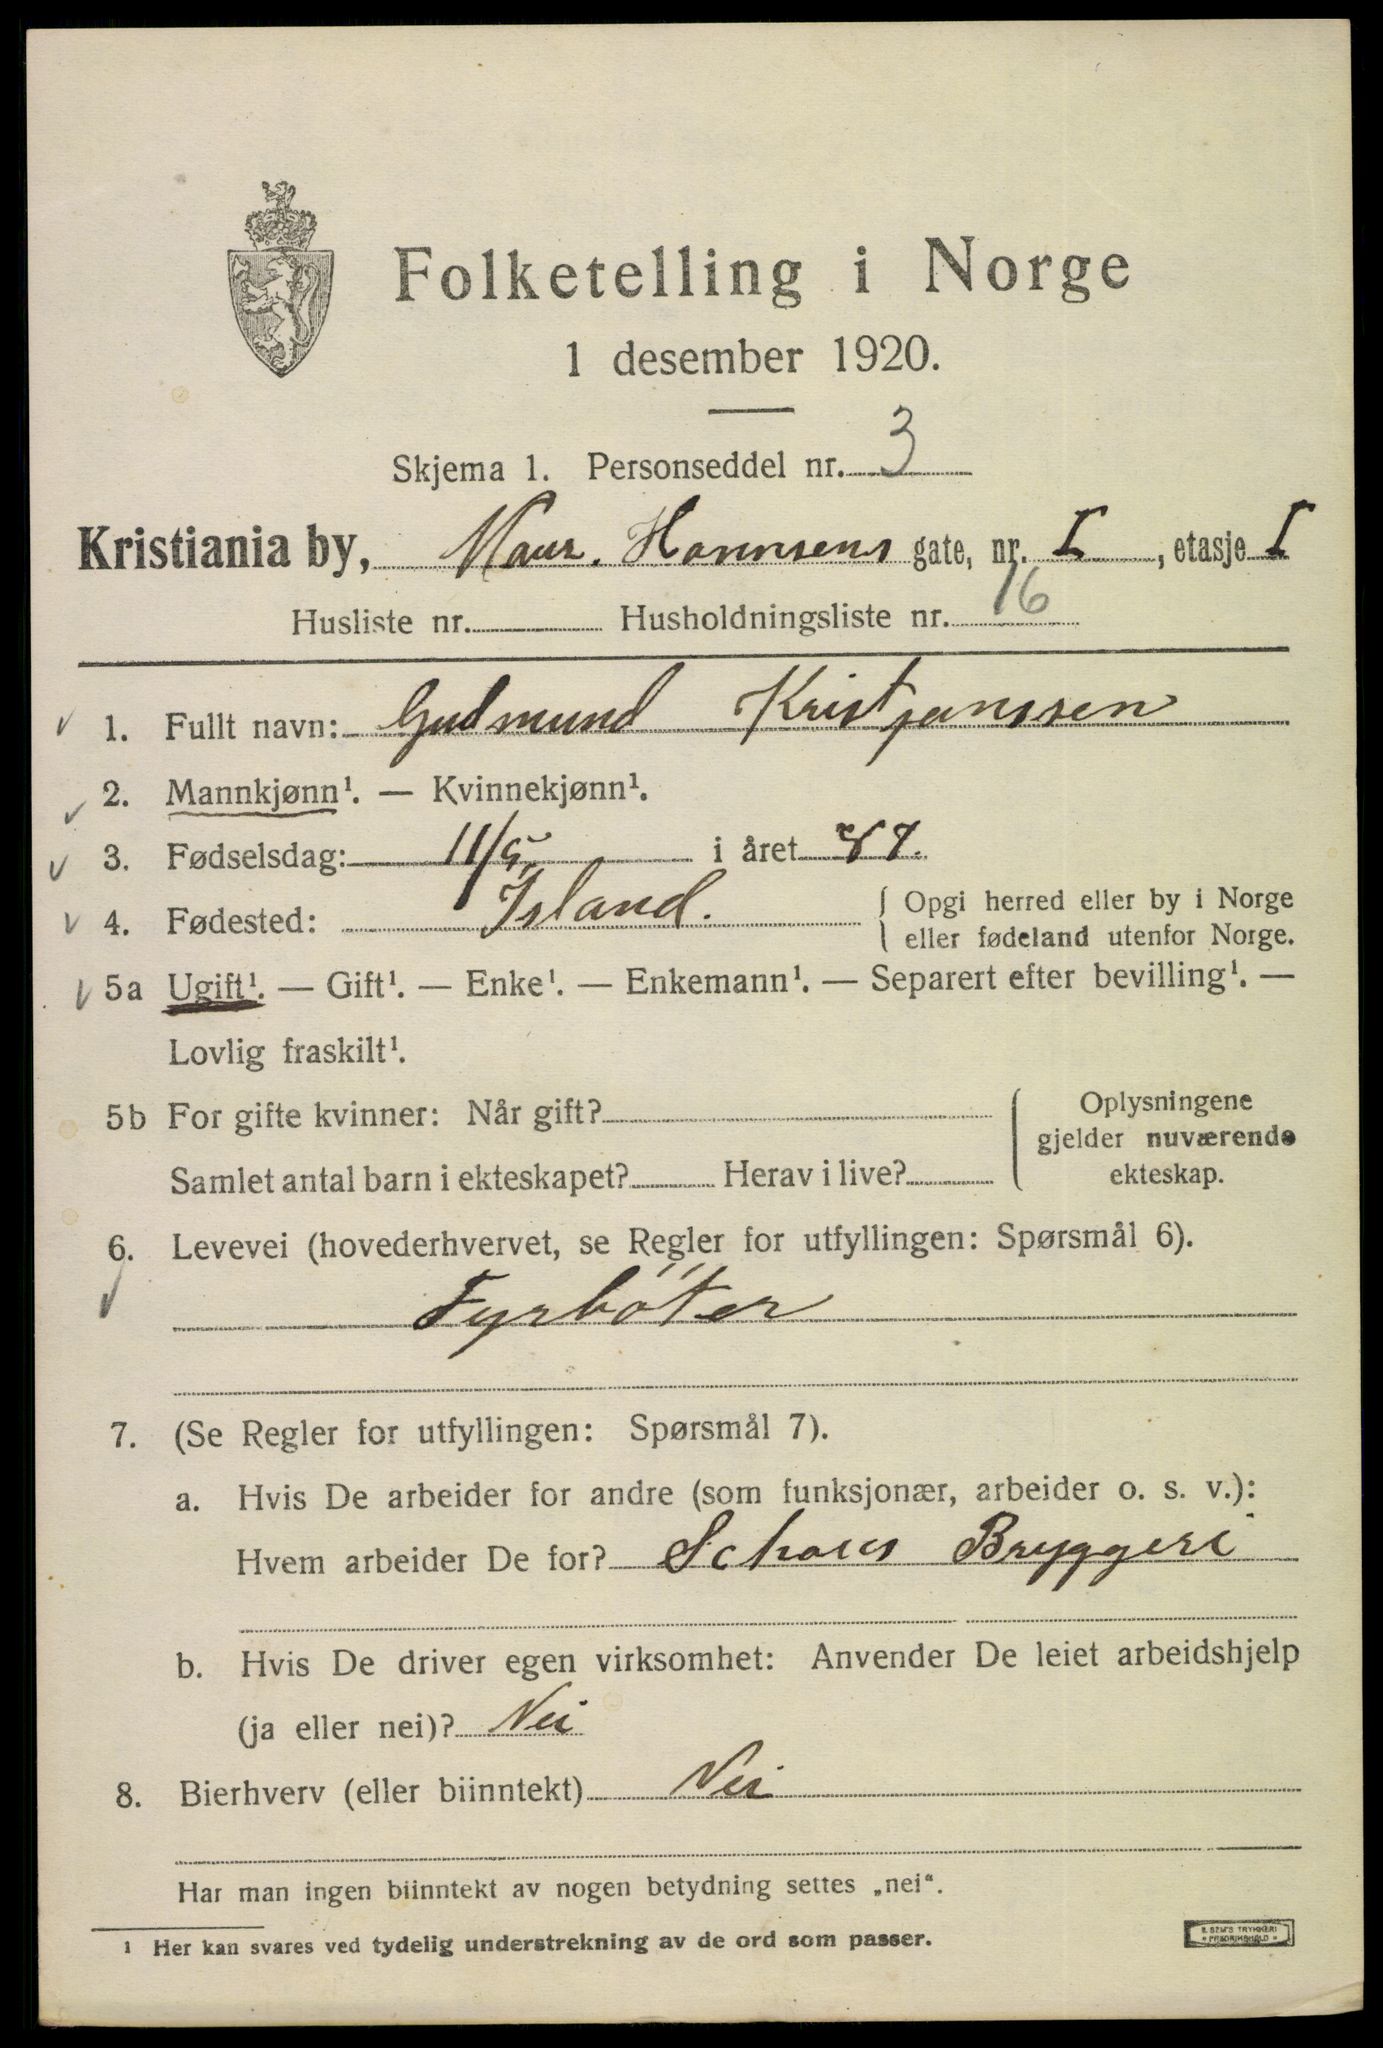 Folketelling i Norge
1 desember 1920.
Skjema 1. Personseddel nr. 3
Kristiania by, Maur. Hannsens gate, nr. I, etasje I
Husliste nr. Husholdningsliste nr. 16
1. Fullt navn: Gudmund Kristjanssen
2. Mannkjønn¹. — Kvinnekjønn¹.
3. Fødselsdag: 11/5 i året 87.
4. Fødested: Island. { Opgi herred eller by i Norge
eller fødeland utenfor Norge.
5a Ugift¹. — Gift¹. — Enke¹. — Enkemann¹. — Separert efter bevilling¹. —
Lovlig fraskilt¹.
5b For gifte kvinner: Når gift? { Oplysningene
gjelder nuværende
Samlet antal barn i ekteskapet? Herav i live? ekteskap.
6. Levevei (hovederhvervet, se Regler for utfyllingen: Spørsmål 6).
Fyrböter
7. (Se Regler for utfyllingen: Spørsmål 7).
a. Hvis De arbeider for andre (som funksjonær, arbeider o. s. v.):
Hvem arbeider De for? Schous Bryggeri
b. Hvis De driver egen virksomhet: Anvender De leiet arbeidshjelp
(ja eller nei)? Nei
8. Bierhverv (eller biinntekt) Nei
Har man ingen biinntekt av nogen betydning settes „nei“.
¹ Her kan svares ved tydelig understrekning av de ord som passer.
E. SEM'S TRYKKERI
FREDRIKSHALD